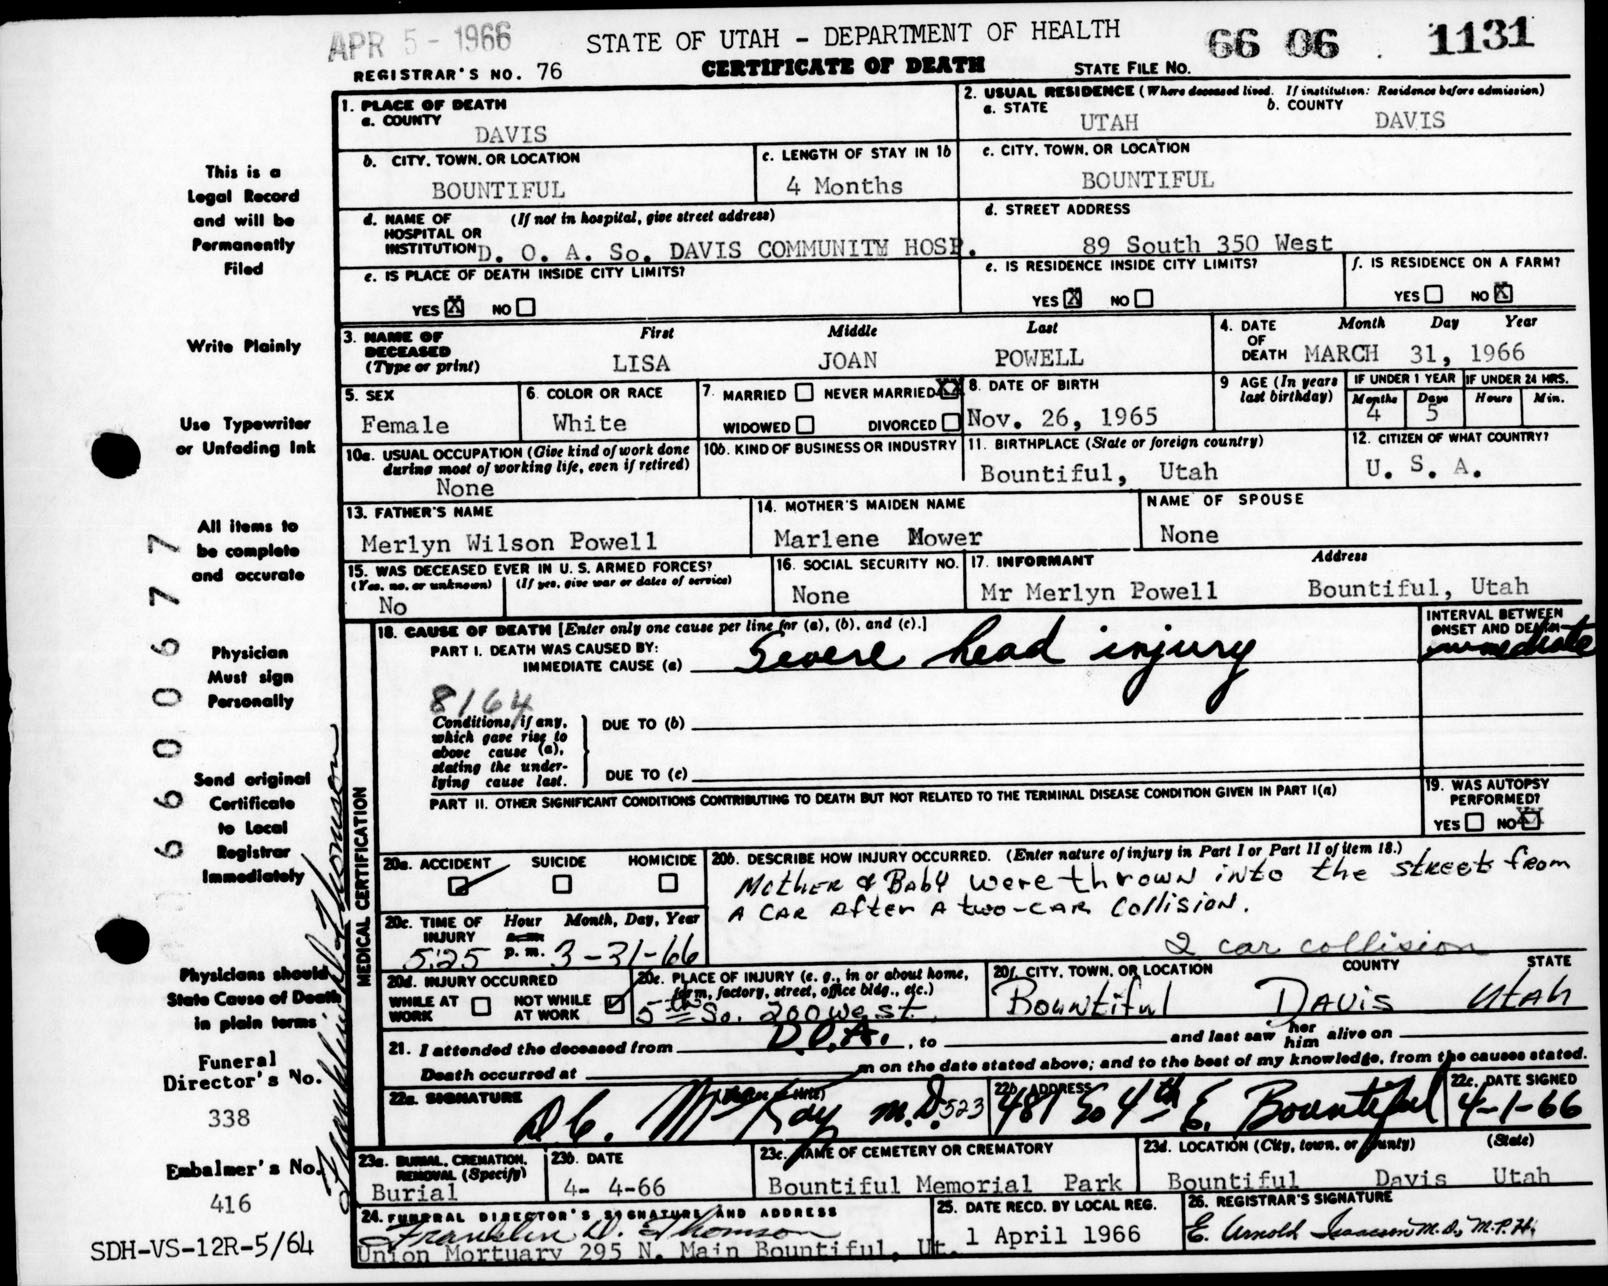 APR 5 - 1966
STATE OF UTAH - DEPARTMENT OF HEALTH
66 06 . 1131
REGISTRAR'S NO. 76
CERTIFICATE OF DEATH
STATE FILE NO.
1. PLACE OF DEATH
a. COUNTY
DAVIS
2. USUAL RESIDENCE (Where deceased lived. If institution: Residence before admission)
a. STATE
UTAH
b. COUNTY
DAVIS
b. CITY, TOWN, OR LOCATION
BOUNTIFUL
c. LENGTH OF STAY IN 1b
4 Months
c. CITY, TOWN, OR LOCATION
BOUNTIFUL
d. NAME OF HOSPITAL OR INSTITUTION (If not in hospital, give street address)
D. O. A. So. DAVIS COMMUNITY HOSP.
d. STREET ADDRESS
89 South 350 West
e. IS PLACE OF DEATH INSIDE CITY LIMITS?
YES X NO
e. IS RESIDENCE INSIDE CITY LIMITS?
YES X NO
f. IS RESIDENCE ON A FARM?
YES NO X
3. NAME OF DECEASED (Type or print)
First Middle Last
LISA JOAN POWELL
4. DATE OF DEATH
Month Day Year
MARCH 31, 1966
5. SEX
Female
6. COLOR OR RACE
White
7. MARRIED NEVER MARRIED XX
WIDOWED DIVORCED
8. DATE OF BIRTH
Nov. 26, 1965
9 AGE (In years last birthday)
IF UNDER 1 YEAR
Months Days
4 5
IF UNDER 24 HRS.
Hours Min.
10a. USUAL OCCUPATION (Give kind of work done during most of working life, even if retired)
None
10b. KIND OF BUSINESS OR INDUSTRY
11. BIRTHPLACE (State or foreign country)
Bountiful, Utah
12. CITIZEN OF WHAT COUNTRY?
U. S. A.
13. FATHER'S NAME
Merlyn Wilson Powell
14. MOTHER'S MAIDEN NAME
Marlene Mower
NAME OF SPOUSE
None
15. WAS DECEASED EVER IN U. S. ARMED FORCES?
(Yes, no, or unknown) (If yes, give war or dates of service)
No
16. SOCIAL SECURITY NO.
None
17. INFORMANT Address
Mr Merlyn Powell Bountiful, Utah
MEDICAL CERTIFICATION
18. CAUSE OF DEATH [Enter only one cause per line for (a), (b), and (c).]
PART I. DEATH WAS CAUSED BY:
IMMEDIATE CAUSE (a) Severe head injury
INTERVAL BETWEEN ONSET AND DEATH
immediate
8164
Conditions, if any, which gave rise to above cause (a), stating the underlying cause last.
DUE TO (b)
DUE TO (c)
PART II. OTHER SIGNIFICANT CONDITIONS CONTRIBUTING TO DEATH BUT NOT RELATED TO THE TERMINAL DISEASE CONDITION GIVEN IN PART I(a)
19. WAS AUTOPSY PERFORMED?
YES NO
20a. ACCIDENT SUICIDE HOMICIDE
20b. DESCRIBE HOW INJURY OCCURRED. (Enter nature of injury in Part I or Part II of item 18.)
Mother & Baby were thrown into the street from
a car after a two-car collision.
2 car collision
20c. TIME OF INJURY
Hour Month, Day, Year
5:25 p. m. 3-31-66
20d. INJURY OCCURRED
WHILE AT WORK NOT WHILE AT WORK
20e. PLACE OF INJURY (e. g., in or about home, farm, factory, street, office bldg., etc.)
5th So. 200 west
20f. CITY, TOWN, OR LOCATION COUNTY STATE
Bountiful Davis Utah
21. I attended the deceased from D.O.A., to and last saw her him alive on
Death occurred at m on the date stated above; and to the best of my knowledge, from the causes stated.
22a. SIGNATURE
D C. McKay M.D. 523
22b. ADDRESS
481 So 4th E. Bountiful
22c. DATE SIGNED
4-1-66
23a. BURIAL, CREMATION, REMOVAL (Specify)
Burial
23b. DATE
4- 4-66
23c. NAME OF CEMETERY OR CREMATORY
Bountiful Memorial Park
23d. LOCATION (City, town, or county) (State)
Bountiful Davis Utah
24. FUNERAL DIRECTOR'S SIGNATURE AND ADDRESS
Franklin D. Thomson
Union Mortuary 295 N. Main Bountiful, Ut.
25. DATE RECD. BY LOCAL REG.
1 April 1966
26. REGISTRAR'S SIGNATURE
E. Arnold Isaacson M.D., M.P.H.
This is a
Legal Record
and will be
Permanently
Filed
Write Plainly
Use Typewriter
or Unfading Ink
All items to
be complete
and accurate
Physician
Must sign
Personally
Send original
Certificate
to Local
Registrar
Immediately
Physicians should
State Cause of Death
in plain terms
Funeral
Director's No.
338
Embalmer's No.
416
SDH-VS-12R-5/64
660677
Franklin D. Thomson